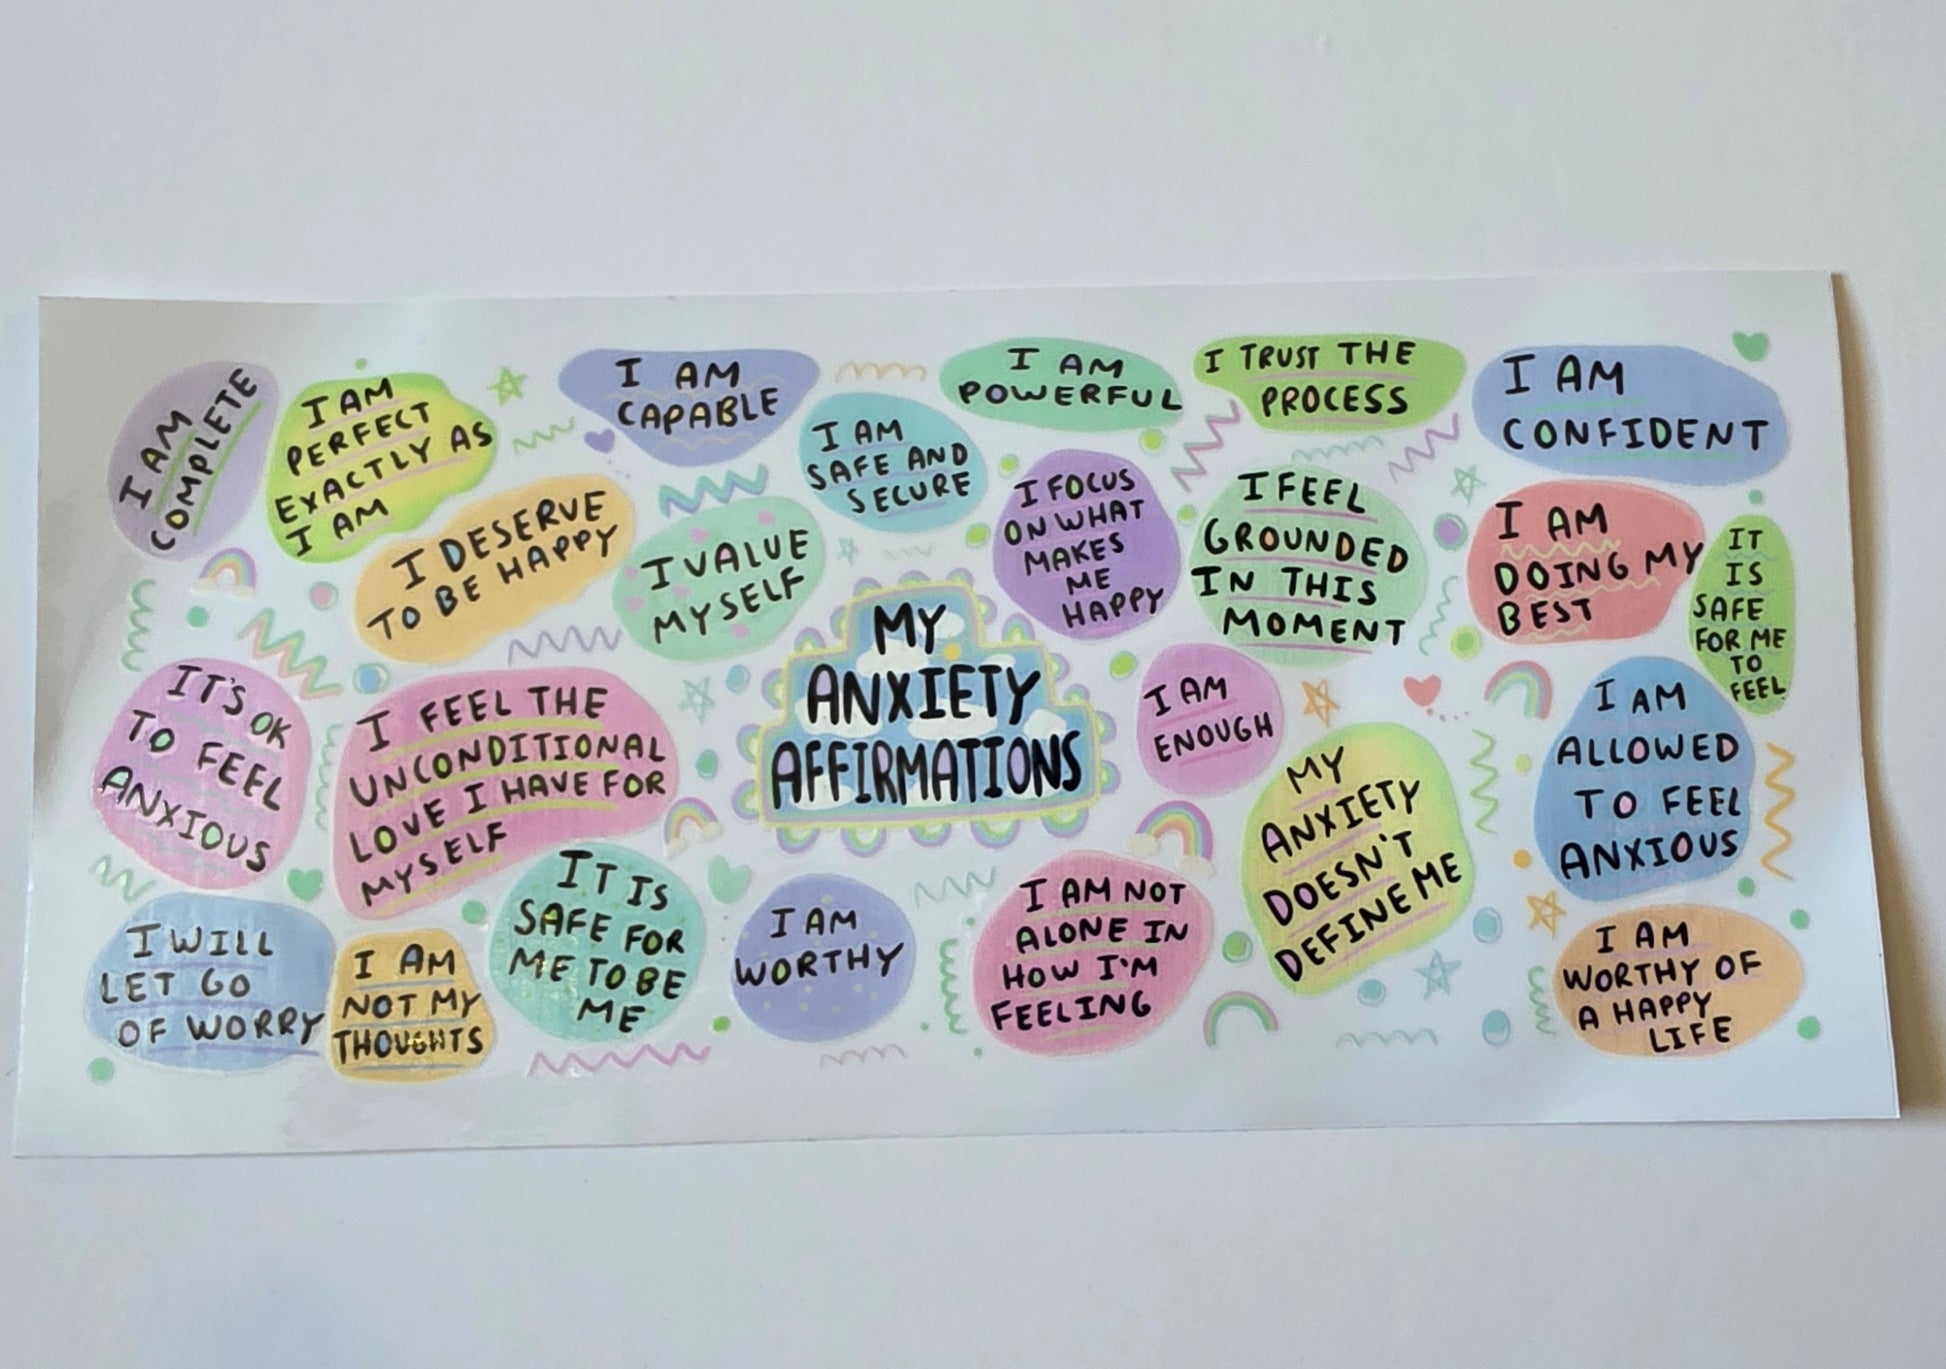 I AM
COMPLETE
I AM
PERFECT
EXACTLY AS
I AM
I AM
CAPABLE
I AM
POWERFUL
I TRUST THE
PROCESS
I AM
CONFIDENT
I DESERVE
TO BE HAPPY
I VALUE
MYSELF
I AM
SAFE AND
SECURE
I FOCUS
ON WHAT
MAKES
ME
HAPPY
I FEEL
GROUNDED
IN THIS
MOMENT
I AM
DOING MY
BEST
IT
IS
SAFE
FOR ME
TO
FEEL
IT'S OK
TO FEEL
ANXIOUS
I FEEL THE
UNCONDITIONAL
LOVE I HAVE FOR
MYSELF
MY
ANXIETY
AFFIRMATIONS
I AM
ENOUGH
MY
ANXIETY
DOESN'T
DEFINE ME
I AM
ALLOWED
TO FEEL
ANXIOUS
I WILL
LET GO
OF WORRY
I AM
NOT MY
THOUGHTS
IT IS
SAFE FOR
ME TO BE
ME
I AM
WORTHY
I AM NOT
ALONE IN
HOW I'M
FEELING
I AM
WORTHY OF
A HAPPY
LIFE